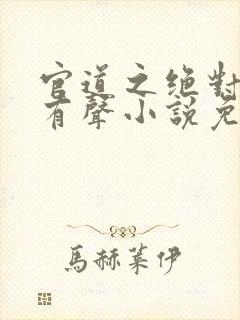 官道之絕對
有聲小說免
馬赫葉伊